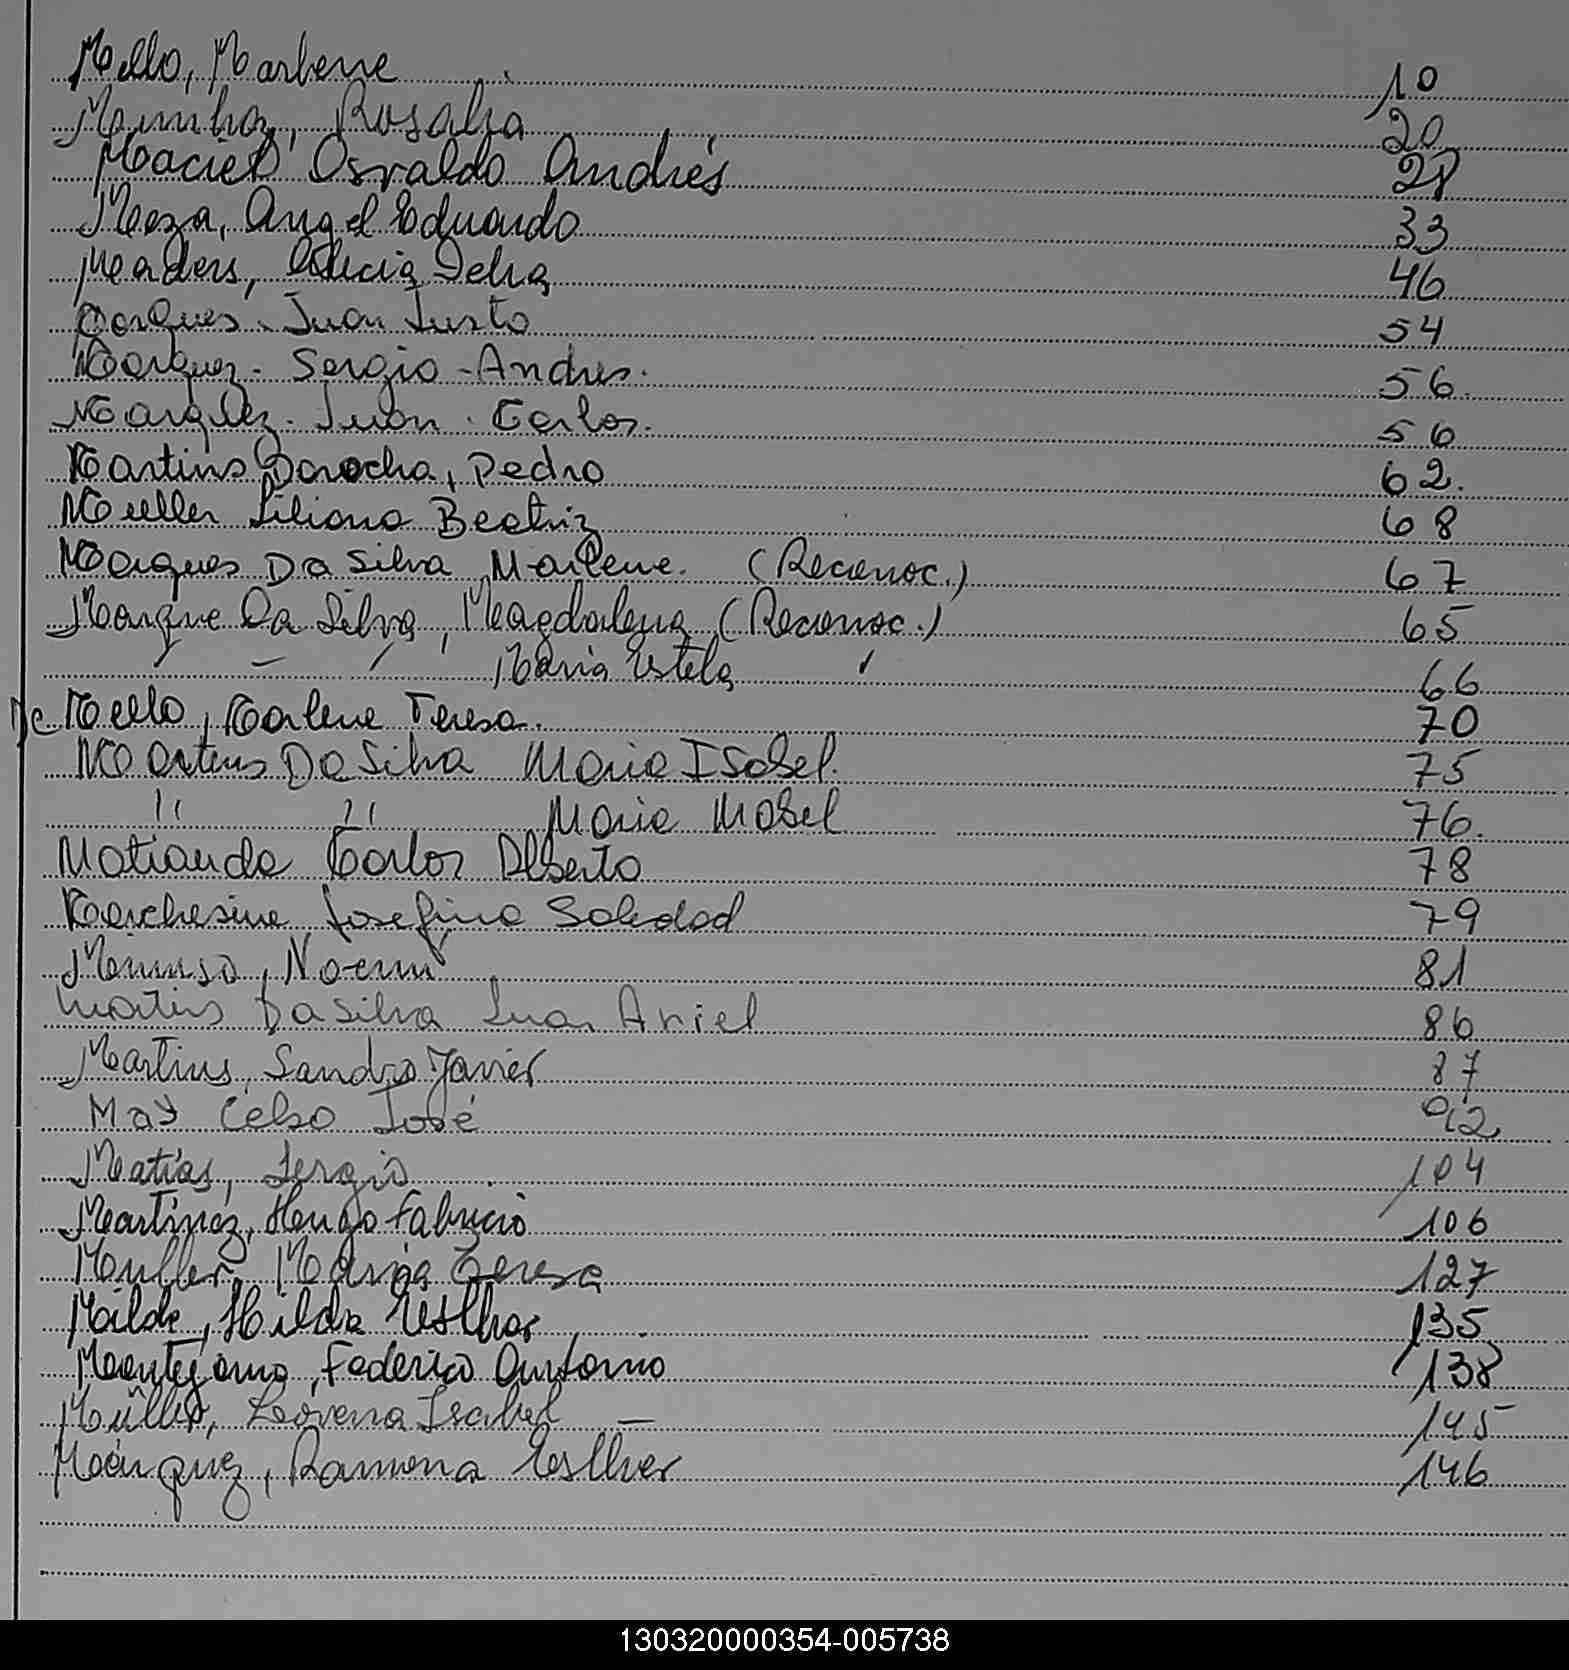 Mello, Marlene 10
Meunhoz, Rosalia 20
Maciel Osvaldo Andrés 28
Meza, Angel Eduardo 33
Meaders, Alicia Delia 46
Marques - Juan Justo 54
Marquez - Sergio - Andres. 56.
Marquez - Juan - Carlos. 56
Martins Darocha, Pedro 62.
Mueller Liliana Beatriz 68
Marques Da Silva Marlene. (Reconoc.) 67
Marque Da Silva, Magdalena (Reconoc.) 65
" - " Maria Estela " 66
De Mello, Marlene Teresa. 70
Martins Da Silva Maria Isabel. 75
" " Maria Mabel 76.
Matiauda Carlos Alberto 78
Marchesine Josefina Soledad 79
, Noemí 81
Martins Da Silva Juan Ariel 86
Martins, Sandro Javier 87
May Celso José 92
Matías, Sergio 104
Martínez, Hugo Fabricio 106
Muller, María Teresa 127
Milde, Hilda Esther 135
Montejano, Federico Antonio 138
Müller, Lorena Isabel - 145
Márquez, Ramona Esther 146
130320000354-005738